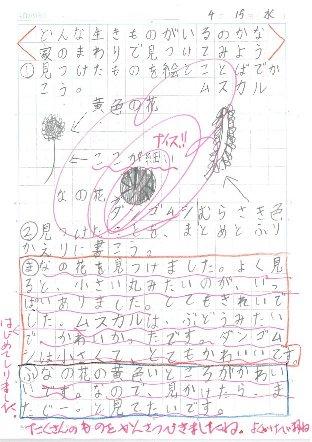 4 15 水
どんな生きものがいるのかな
家のまわりで見つけてみよう
①見つけたものを絵とことばでか
こう。
ムスカル
黄色の花
ナイス!!
ここが細い
なの花
ダンゴムシ
むらさき色
②見つけたことも、まとめとふり
かえりに書こう。
まなの花を見つけました。よく見
ると、小さい丸みたいのが、いっ
ぱいありました。とてもきれいで
した。ムスカルは、ぶどうみたい
で、かわいかったです。ダンゴム
シは小さくて、とてもかわいいです。
ふなの花の黄色いところがかわい
いです。なので、見かけたら、ま
たじーっと見てたいです。
はじめてしりました。
たくさんのものをかんさつできましたね。